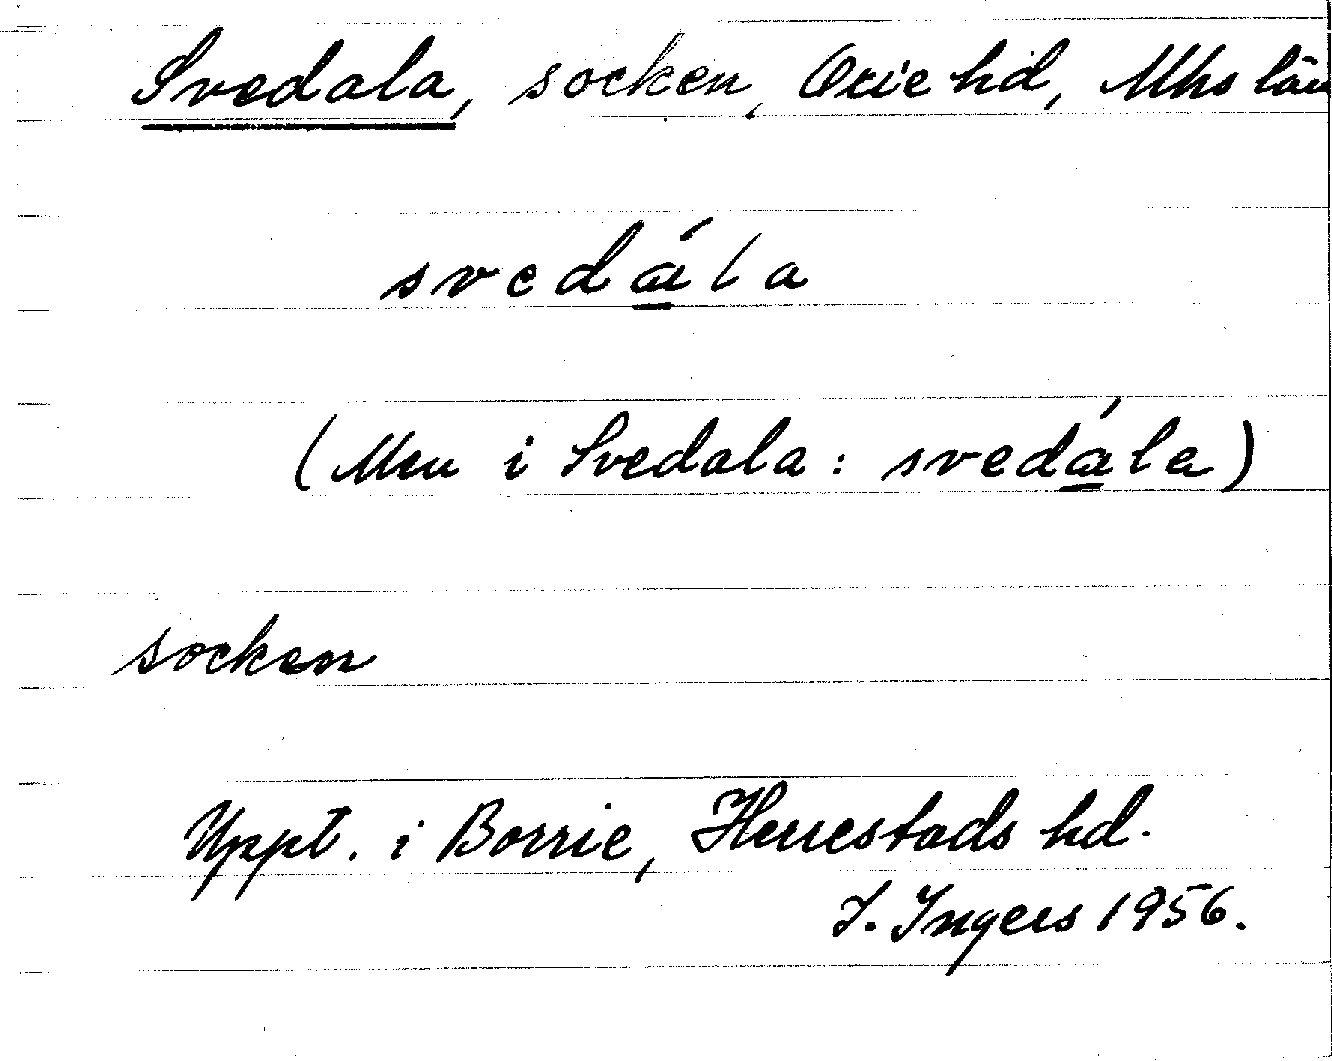 Svedala, socken, Oxie hd, Mhs län
svedála
(Men i Svedala: svedále)
socken
Uppt. i Borrie, Herrestads hd.
I. Ingers 1956.